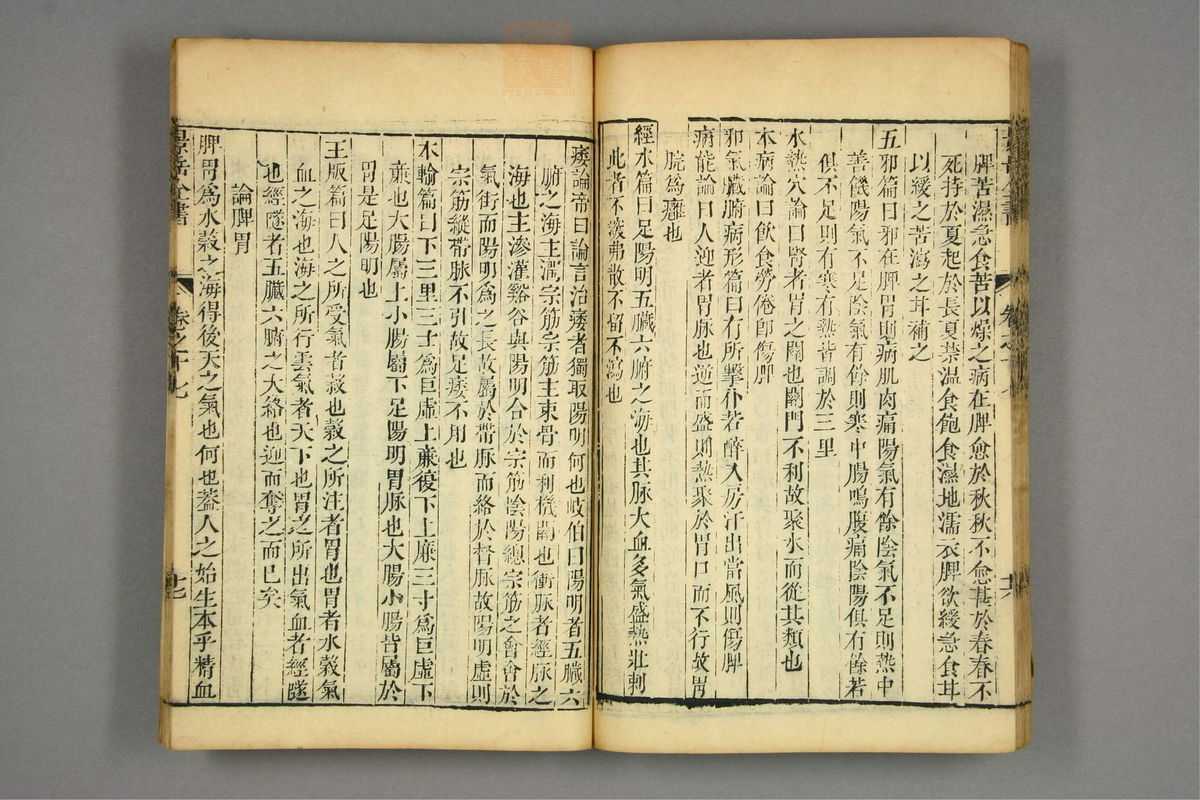 脾苦濕急食苦以燥之病在脾愈於秋秋不愈甚於春春不
死持於夏起於長夏禁温食飽食濕地濡衣脾欲緩急食甘
以緩之苦瀉之甘補之
五邪篇曰邪在脾胃則病肌肉痛陽氣有餘陰氣不足則熱中
善饑陽氣不足陰氣有餘則寒中腸鳴腹痛陰陽俱有餘若
俱不足則有寒有熱皆調於三里
水熱穴論曰腎者胃之關也關門不利故聚水而從其類也
本病論曰飲食勞倦即傷脾
邪氣臟腑病形篇曰有所擊仆若醉入房汗出當風則傷脾
病能論曰人迎者胃脉也逆而盛則熱聚於胃口而不行故胃
脘爲癰也
經水篇曰足陽明五臟六腑之海也其脉大血多氣盛熱壯刺
此者不深弗散不留不瀉也
痿論帝曰論言治痿者獨取陽明何也岐伯曰陽明者五臟六
腑之海主潤宗筋宗筋主束骨而利機關也衝脉者經脉之
海也主滲灌谿谷與陽明合於宗筋陰陽總宗筋之會會於
氣街而陽明爲之長故屬於帶脉而絡於督脉故陽明虛則
宗筋縱帶脉不引故足痿不用也
本輸篇曰下三里三寸爲巨虛上亷復下上亷三寸爲巨虛下
亷也大腸屬上小腸屬下足陽明胃脉也大腸小腸皆屬於
胃是足陽明也
王版篇曰人之所受氣者穀也穀之所注者胃也胃者水穀氣
血之海也海之所行雲氣者天下也胃之所出氣血者經隧
也經隧者五臟六腑之大絡也迎而奪之而已矣
論脾胃
脾胃爲水穀之海得後天之氣也何也葢人之始生本乎精血
景岳全書
卷之十七
十七
十六